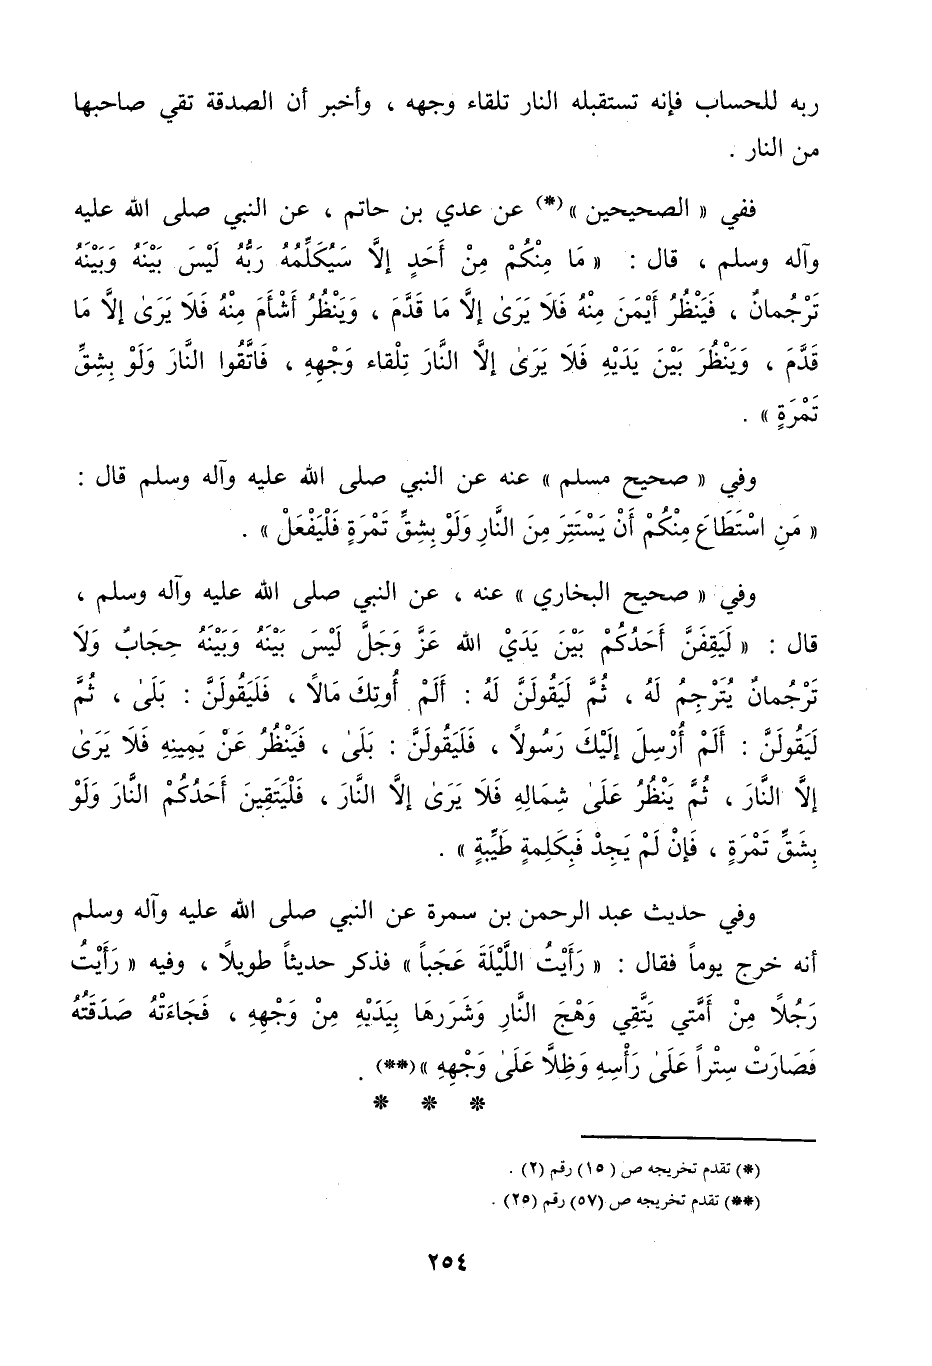 ربه للحساب فإنه تستقبله النار تلقاء وجهه ، وأخبر أن الصدقة تقي صاحبها
من النار .
ففي « الصحيحين »(*) عن عدي بن حاتم ، عن النبي صلى الله عليه
وآله وسلم ، قال : « مَا مِنْكُمْ مِنْ أَحَدٍ إلَّا سَيُكَلِّمُهُ رَبُّهُ لَيْسَ بَيْنَهُ وَبَيْنَهُ
تَرْجُمانٌ ، فَيَنْظُرُ أَيْمَنَ مِنْهُ فَلَا يَرَىٰ إلَّا مَا قَدَّمَ ، وَيَنْظُرُ أَشْأَمَ مِنْهُ فَلَا يَرَىٰ إلَّا مَا
قَدَّمَ ، وَيَنْظُرَ بَيْنَ يَدَيْهِ فَلَا يَرَىٰ إلَّا النَّارَ تِلْقاء وَجْهِهِ ، فَاتَّقُوا النَّارَ وَلَوْ بِشِقِّ
تَمْرَةٍ » .
وفي « صحيح مسلم » عنه عن النبي صلى الله عليه وآله وسلم قال :
« مَنِ اسْتَطَاعَ مِنْكُمْ أَنْ يَسْتَتِرَ مِنَ النَّارِ وَلَوْ بِشِقِّ تَمْرَةٍ فَلْيَفْعَلْ » .
وفي « صحيح البخاري » عنه ، عن النبي صلى الله عليه وآله وسلم ،
قال : « لَيَقِفَنَّ أَحَدُكُمْ بَيْنَ يَدَيْ الله عَزَّ وَجَلَّ لَيْسَ بَيْنَهُ وَبَيْنَهُ حِجَابٌ وَلَا
تَرْجُمانٌ يُتَرْجِمُ لَهُ ، ثُمَّ لَيَقُولَنَّ لَهُ : أَلَمْ أُوتِكَ مَالاً ، فَلَيَقُولَنَّ : بَلَىٰ ، ثُمَّ
لَيَقُولَنَّ : أَلَمْ أُرْسِلَ إلَيْكَ رَسُولاً ، فَلَيَقُولَنَّ : بَلَىٰ ، فَيَنْظُرُ عَنْ يَمِينِهِ فَلَا يَرَىٰ
إلَّا النَّارَ ، ثُمَّ يَنْظُرُ عَلَىٰ شِمَالِهِ فَلَا يَرَىٰ إلَّا النَّارَ ، فَلْيَتَقِينَ أَحَدُكُمْ النَّارَ وَلَوْ
بِشَقِّ تَمْرَةٍ ، فَإنْ لَمْ يَجِدْ فَبِكَلِمةٍ طَيِّبةٍ » .
وفي حديث عبد الرحمن بن سمرة عن النبي صلى الله عليه وآله وسلم
أنه خرج يوماً فقال : « رَأَيْتُ اللَّيْلَةَ عَجَباً » فذكر حديثاً طويلاً ، وفيه « رَأَيْتُ
رَجُلاً مِنْ أُمَّتي يَتَّقِي وَهْجَ النَّارِ وَشَرَرهَا بِيَدَيْهِ مِنْ وَجْهِهِ ، فَجَاءَتْهُ صَدَقَتُهُ
فَصَارَتْ سِتْراً عَلَىٰ رَأْسِهِ وَظِلَّا عَلَىٰ وَجْهِهِ »(**) .
* * *
(*) تقدم تخريجه ص (١٥) رقم (٢) .
(**) تقدم تخريجه ص (٥٧) رقم (٢٥) .
٢٥٤